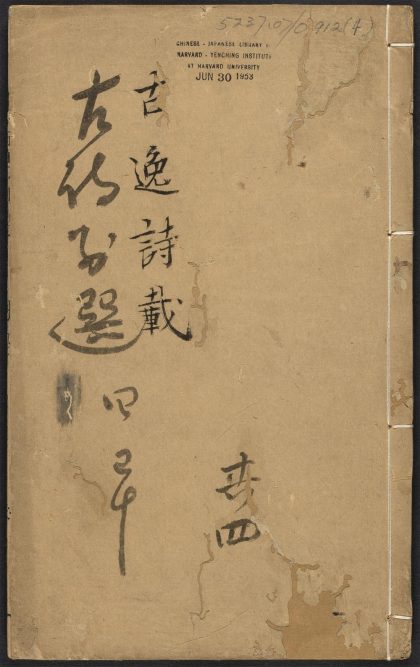 5237.07/0.912(4)
CHINESE - JAPANESE LIBRARY
HARVARD - YENCHING INSTITUTE
AT HARVARD UNIVERSITY
JUN 30 1953
古逸詩載
古詩
選
四
共四